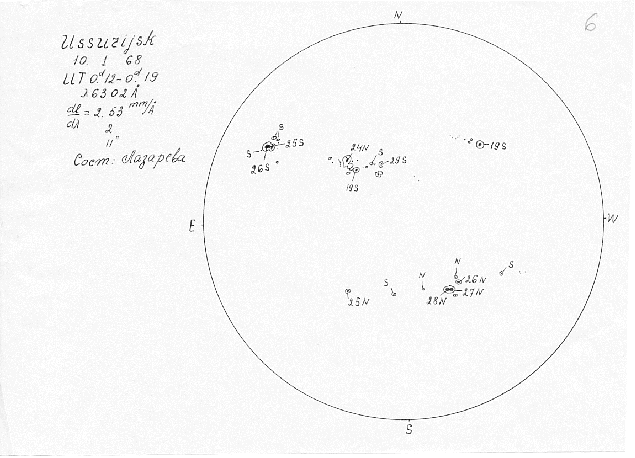 6
Ussuzijsk
10. 1 68
UT 0ᵈ.12-0ᵈ.19
λ6302Å
dl/dλ = 2.53 mm/Å
2
11"
Сост: Лазарева
N
E
W
S
S
S
25S
26S
24N
S
29S
19S
19S
S
25N
N
N
26N
27N
28N
S